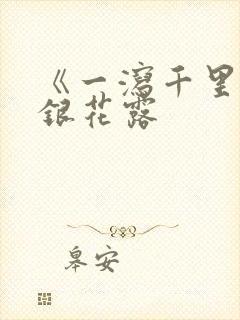 《一瀉千里
銀花露
皋安